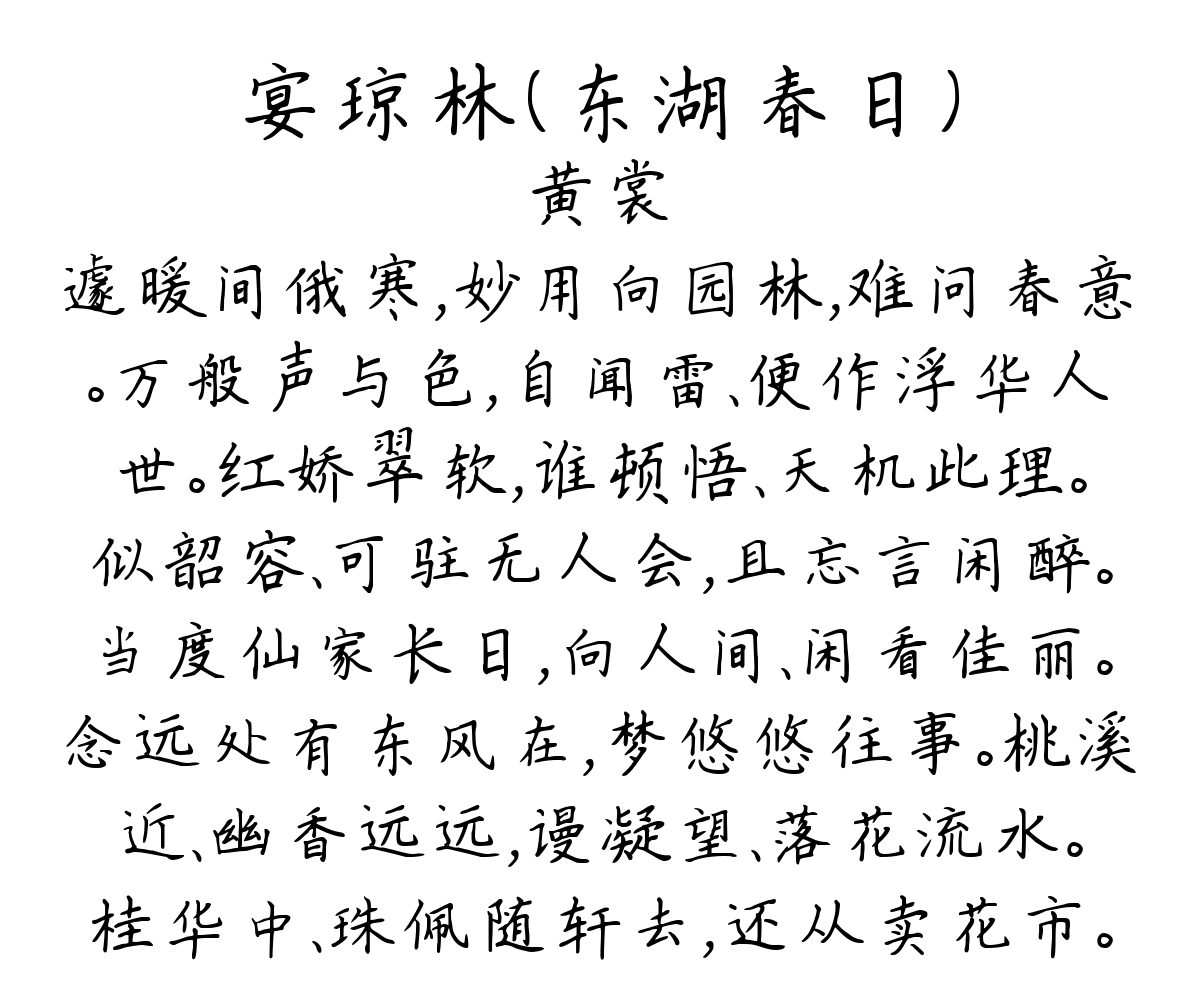 宴琼林(东湖春日)
黄裳
遽暖间俄寒,妙用向园林,难问春意
。万般声与色,自闻雷、便作浮华人
世。红娇翠软,谁顿悟、天机此理。
似韶容、可驻无人会,且忘言闲醉。
当度仙家长日,向人间、闲看佳丽。
念远处有东风在,梦悠悠往事。桃溪
近、幽香远远,谩凝望、落花流水。
桂华中、珠佩随轩去,还从卖花市。